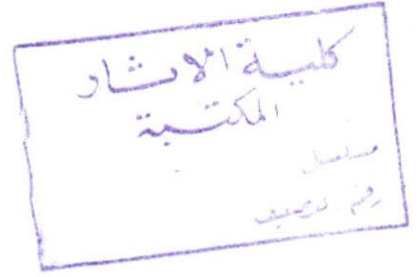 كلية الآثار
المكتبة
مسلسل
رقم التصنيف